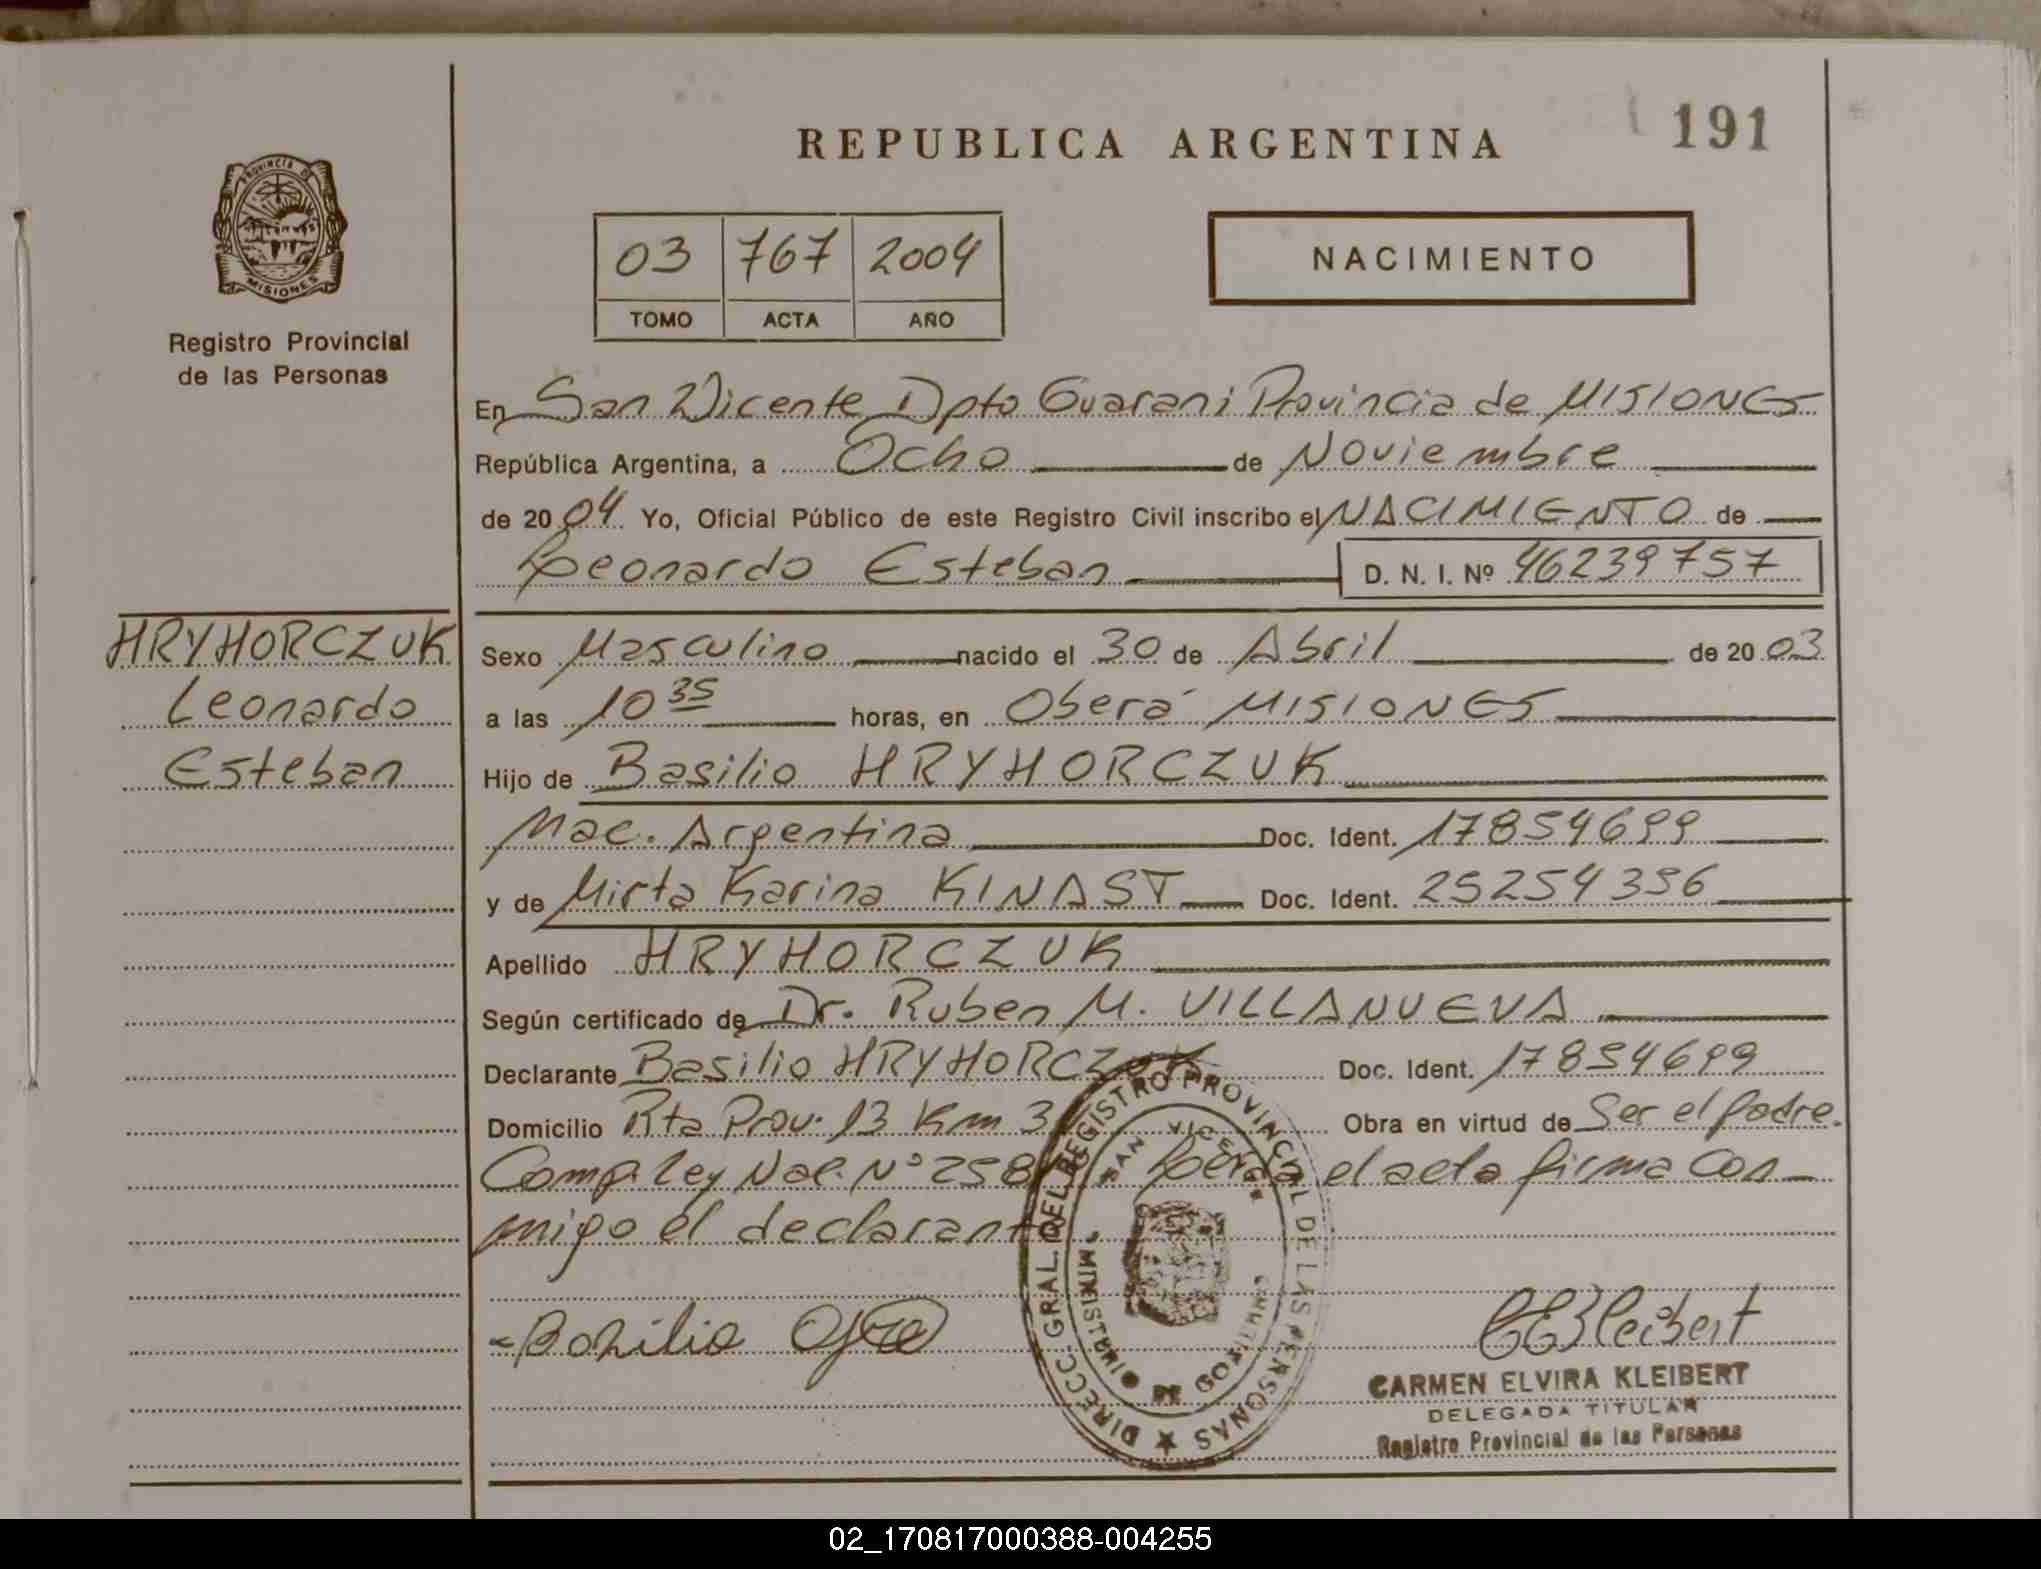 REPUBLICA ARGENTINA
191
PROVINCIA DE
MISIONES
Registro Provincial
de las Personas
03 767 2004
TOMO ACTA AÑO
NACIMIENTO
En San Vicente Dpto Guarani Provincia de MISIONES
República Argentina, a Ocho de Noviembre
de 2004 Yo, Oficial Público de este Registro Civil inscribo el NACIMIENTO de
Leonardo Esteban D. N. I. Nº 46239757
HRYHORCZUK
Leonardo
Esteban
Sexo Masculino nacido el 30 de Abril de 2003
a las 10 35 horas, en Oberá MISIONES
Hijo de Basilio HRYHORCZUK
Nac. Argentina Doc. Ident. 17854699
y de Mirta Karina KINAST Doc. Ident. 25254356
Apellido HRYHORCZUK
Según certificado de Dr. Ruben M. VILLANUEVA
Declarante Basilio HRYHORCZUK Doc. Ident. 17854699
Domicilio Rta Prov. 13 Km 3 Obra en virtud de Ser el padre.
Comp. Ley Nac. Nº 258 el acta firma Con
migo el declarante
DIRECC. GRAL. DEL REGISTRO PROVINCIAL DE LAS PERSONAS
SAN VICENTE
MINISTERIO DE GOBIERNO
Basilio
CEKleibert
CARMEN ELVIRA KLEIBERT
DELEGADA TITULAR
Registro Provincial de las Personas
02_170817000388-004255